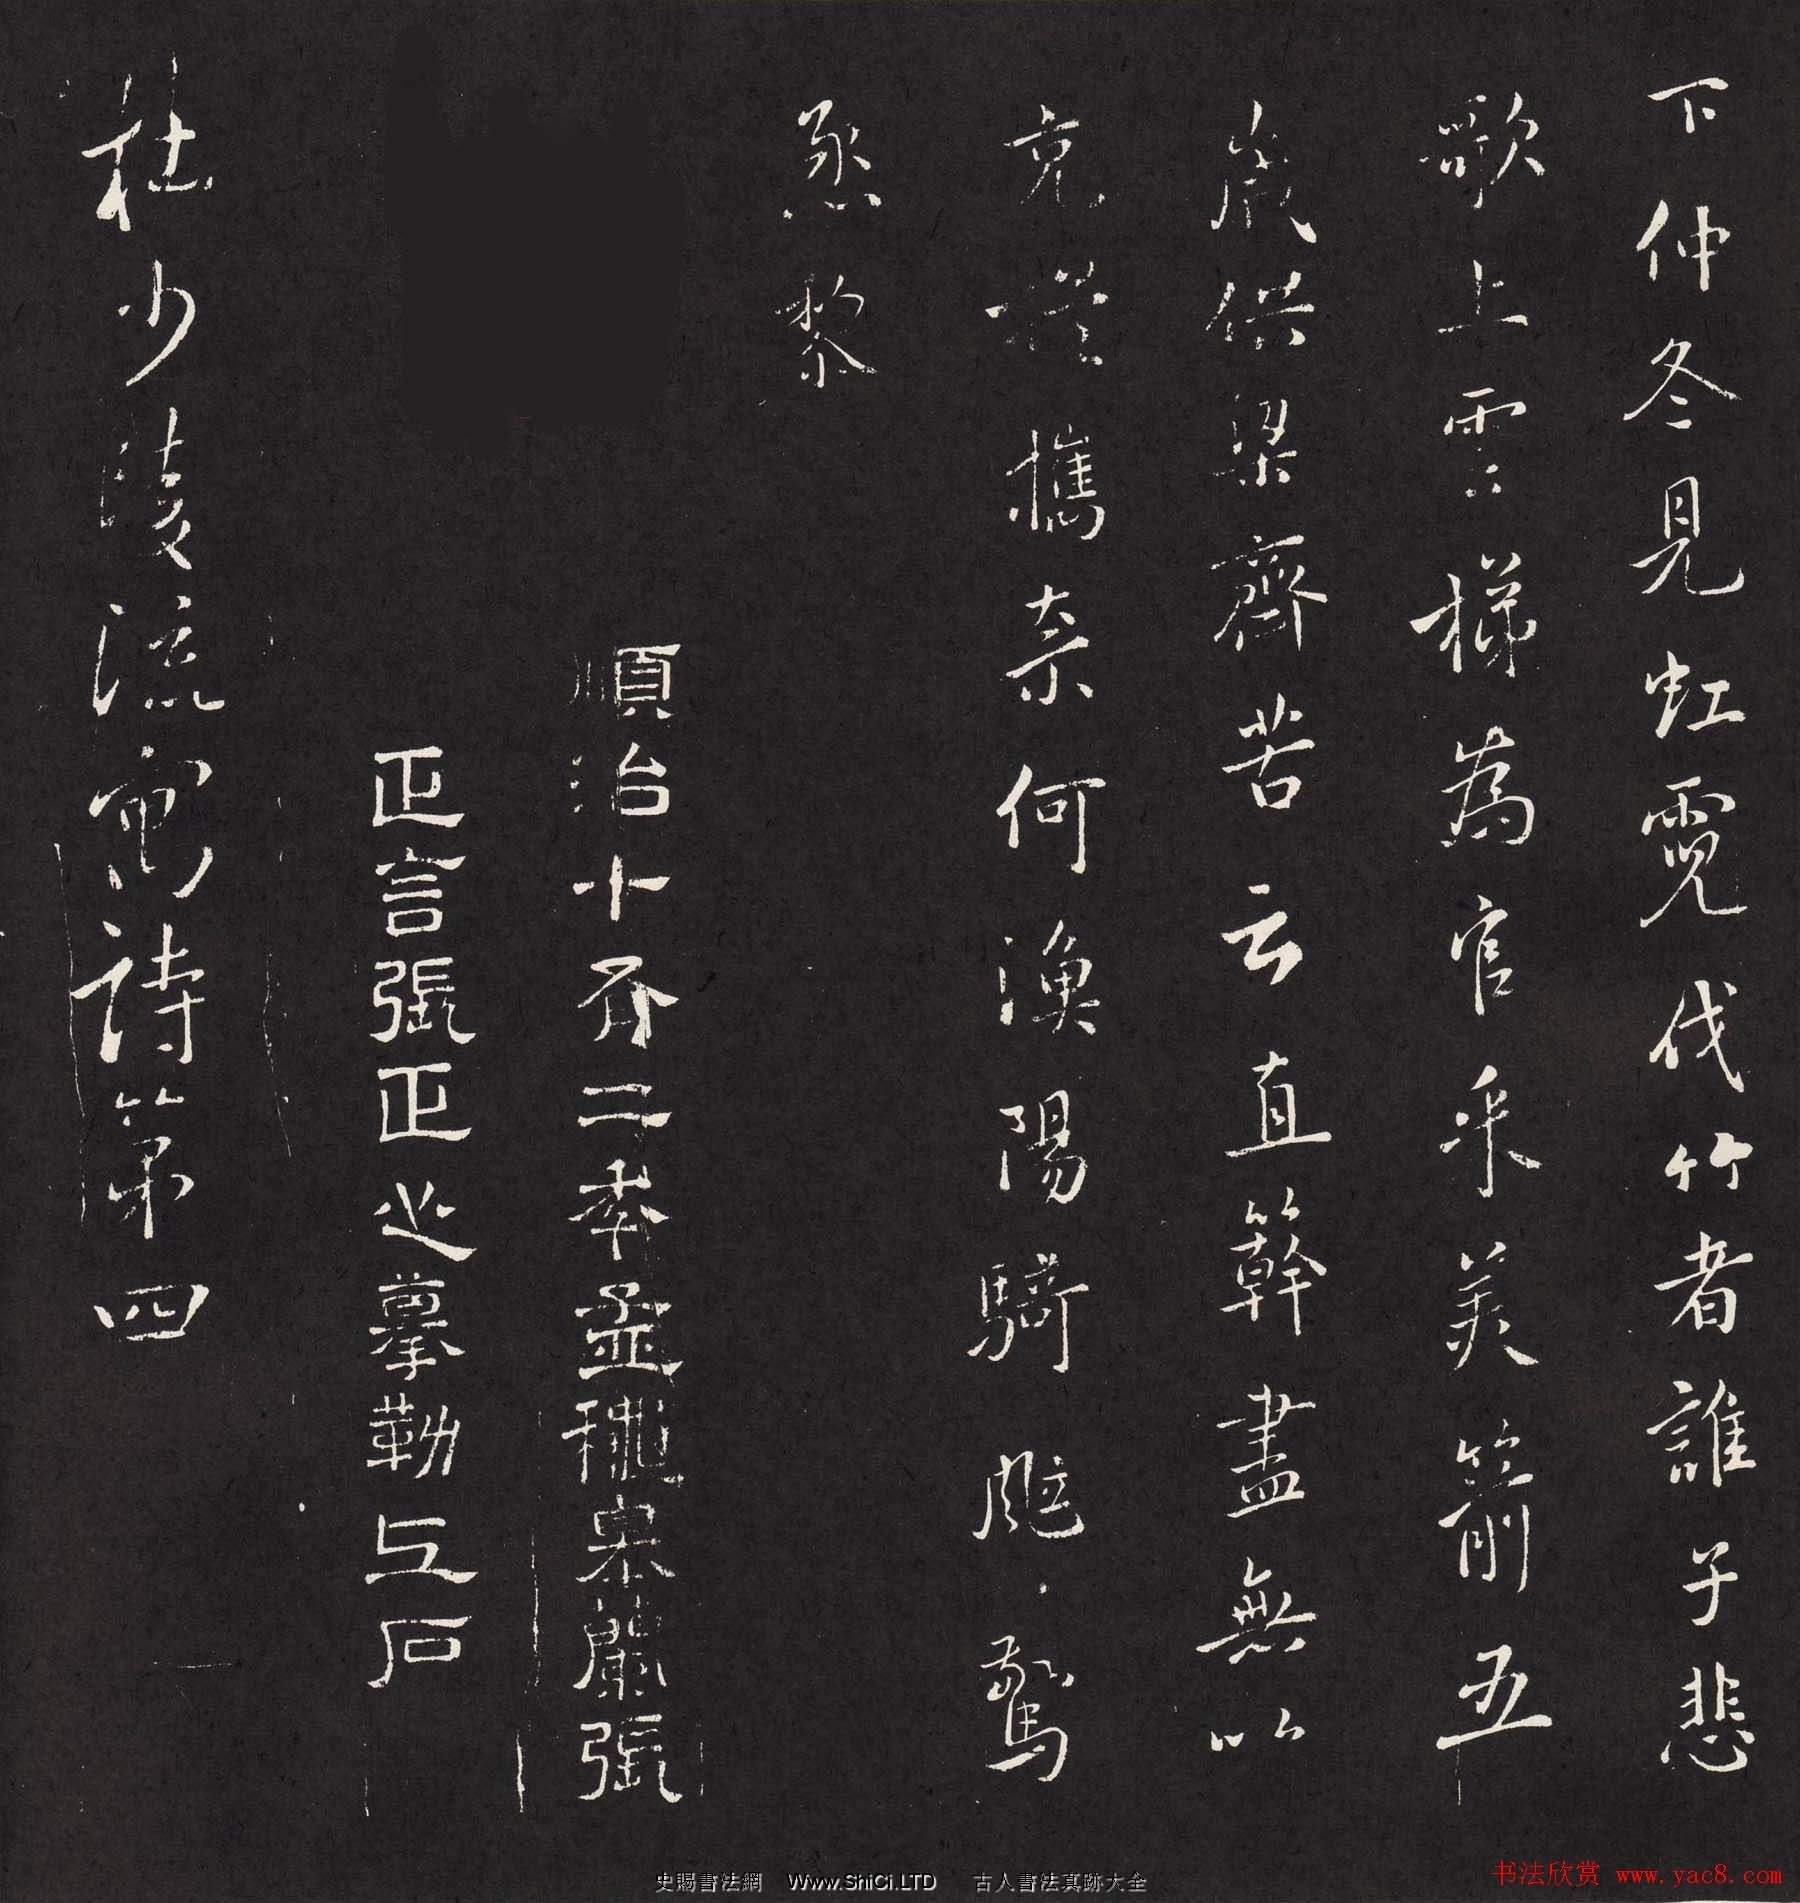 下仲冬見虹霓伐竹者誰子悲
歌上雲梯為官采美箭五
歲供梁齊苦云直簳盡無以
充提攜奈何漁陽騎颯〻驚
烝黎
順治十有二秊孟穐皋蘭張
正言張正心摹勒上石
杜少陵流寓詩第四
史賜書法網 Www.ShiCi.LTD 古人書法真跡大全
书法欣赏 www.yac8.com